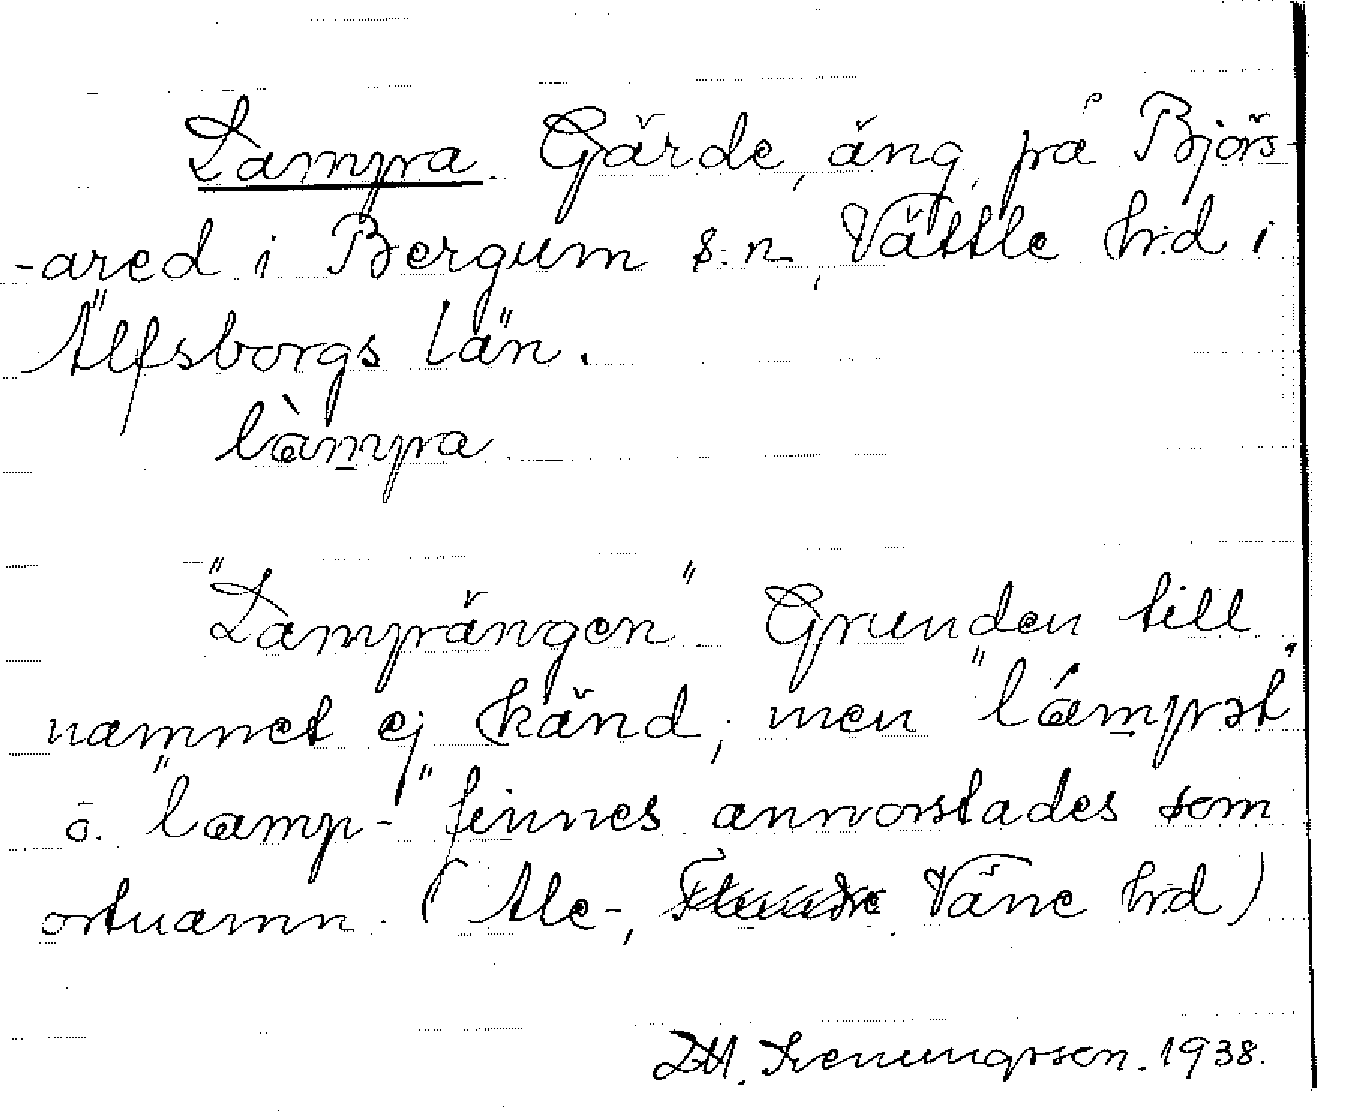 Lampra. Gärde, äng, på Björs-
-ared i Bergum s:n, Vättle hrd i
Älfsborgs län.
làmpra
"Lamprängen" Grunden till
namnet ej känd; men "lámprət"
o. "lamp-" finnes annorstades som
ortnamn. (Ale-, Väne hrd)
1938.